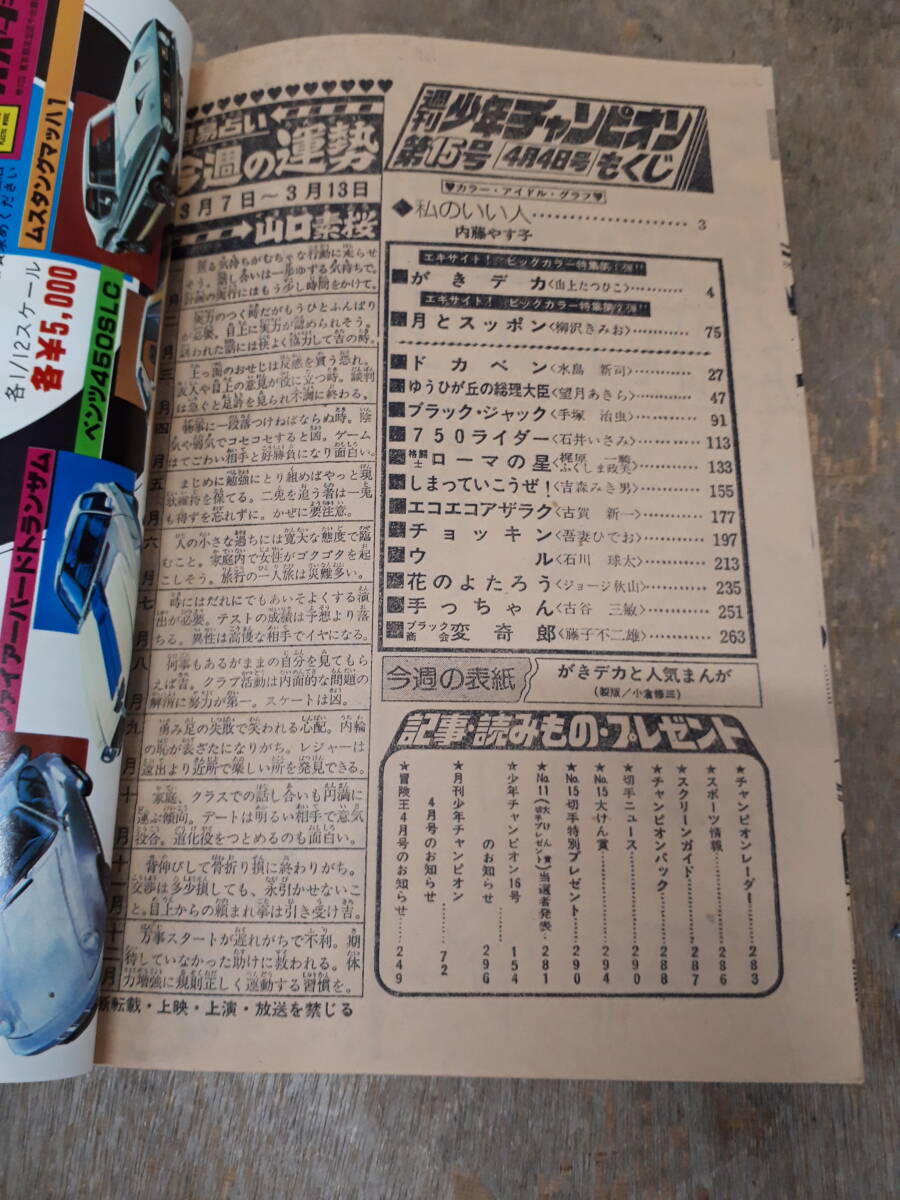 ムスタングマッハ1
各1/12スケール
各¥5,000
ベンツ450SLC
ファイアーバードトランザム
週刊
少年チャンピオン
第15号
4月4日号
もくじ
♥カラー・アイドル・グラフ♥
◆私のいい人……3
内藤やす子
エキサイト!
ビッグカラー特集第1弾!!
がきデカ〈山上たつひこ〉……4
エキサイト!
ビッグカラー特集第2弾!!
月とスッポン〈柳沢きみお〉……75
ドカベン〈水島新司〉……27
ゆうひが丘の総理大臣〈望月あきら〉……47
ブラック・ジャック〈手塚治虫〉……91
750ライダー〈石井いさみ〉……113
格闘士ローマの星〈梶原一騎 ふくしま政美〉……133
しまっていこうぜ!〈吉森みき男〉……155
エコエコアザラク〈古賀新一〉……177
チョッキン〈吾妻ひでお〉……197
ウル〈石川球太〉……213
花のよたろう〈ジョージ秋山〉……235
手っちゃん〈古谷三敏〉……251
ブラック商会変奇郎〈藤子不二雄〉……263
今週の表紙
がきデカと人気まんが
(製版/小倉修三)
記事・読みもの・プレゼント
★チャンピオンレーダー……283
★スポーツ情報……286
★スクリーンガイド……287
★チャンピオンパック……288
★切手ニュース……290
★No.15大けん賞……294
★No.15切手特別プレゼント……290
★No.11(大けん賞 切手プレゼント)当選者発表…281
★少年チャンピオン16号……154
のお知らせ……296
★月刊少年チャンピオン
4月号のお知らせ……72
★冒険王4月号のお知らせ……249
易占い
今週の運勢
3月7日〜3月13日
山口素桜
気持ちがむちゃな行動に走らせ
そう。話し合いは一歩ゆずる気持ちで。
計画の実行にはもう少し時間をかけて。
二月
実力のつく時だがもうひとふんばり
が必要。目上に実力が認められそう。
誘われた話には快よく協力して吉の時。
三月
上っ面のおせじは反感を買う恐れ。
友人や目上の意見が役に立つ時。談判
は急ぐと足許を見られ不調に終わる。
四月
物事に一段落つけねばならぬ時。陰
気や弱気でコセコセすると凶。ゲーム
はてごわい相手と好勝負になり面白い。
五月
まじめに勉強にとり組めばやっと現
状維持を保てる。二兎を追う者は一兎
も得ずを忘れずに。かぜに要注意。
六月
人の小さな過ちには寛大な態度で臨
むこと。家庭内で女性がゴタゴタを起
こしそう。旅行の一人旅は災難多い。
七月
時にはだれにでもあいそよくする演
出が必要。テストの成績は予想より落
ちる。異性は高慢な相手でイヤになる。
八月
何事もあるがままの自分を見てもら
えば吉。クラブ活動は内面的な問題の
解消に努力が第一。スケートは凶。
九月
勇み足の失敗で笑われる心配。内輪
の恥が表ざたになりがち。レジャーは
遠出より近所で楽しい所を発見できる。
十月
家庭、クラスでの話し合いも円満に
運ぶ傾向。デートは明るい相手で意気
投合。道化役をつとめるのも面白い。
十一月
背伸びして骨折り損に終わりがち。
交渉は多少損しても、永引かせないこ
と。目上からの頼まれ事は引き受け吉。
十二月
万事スタートが遅れがちで不利。期
待していなかった助けに救われる。体
力増強に規則正しく運動する習慣を。
断転載・上映・上演・放送を禁じる